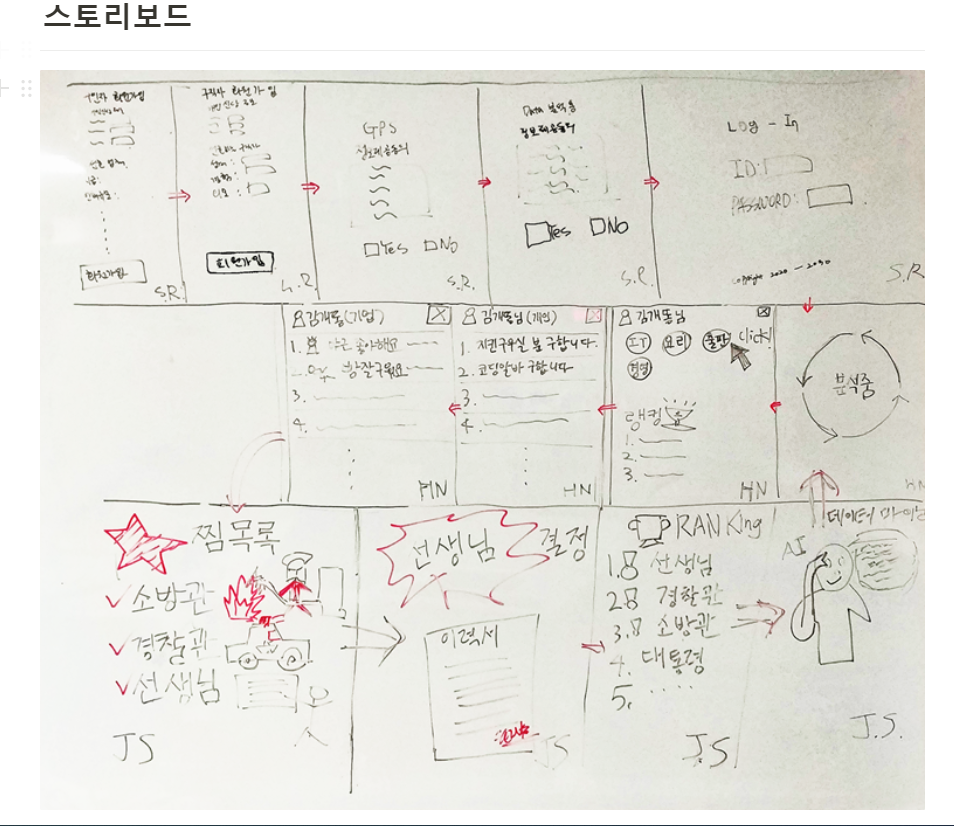 스토리보드
구인자 회원가입
회원가입
S.R.
구직자 회원가입
회원가입
S.R.
GPS
정보제공동의
Yes No
S.R.
Data 분석용
정보제공동의
Yes No
S.R.
Log - In
ID:
PASSWORD:
copyright 2020 - 2030
S.R
김개똥(기업) X
1.
2.
3.
4.
HN
김개똥님(개인) X
1. 지킨구우실 분 구합니다.
2. 코딩알바 구합니다
3.
4.
HN
김개똥님 X
IT 요리 출판 Click!
경영
랭킹
1.
2.
3.
HN
분석중
HN
찜목록
소방관
경찰관
선생님
JS
선생님 결정
이력서
JS
RANKing
1. 선생님
2. 경찰관
3. 소방관
4. 대통령
5. .....
J.S
데이터 마이닝
AI
J.S.